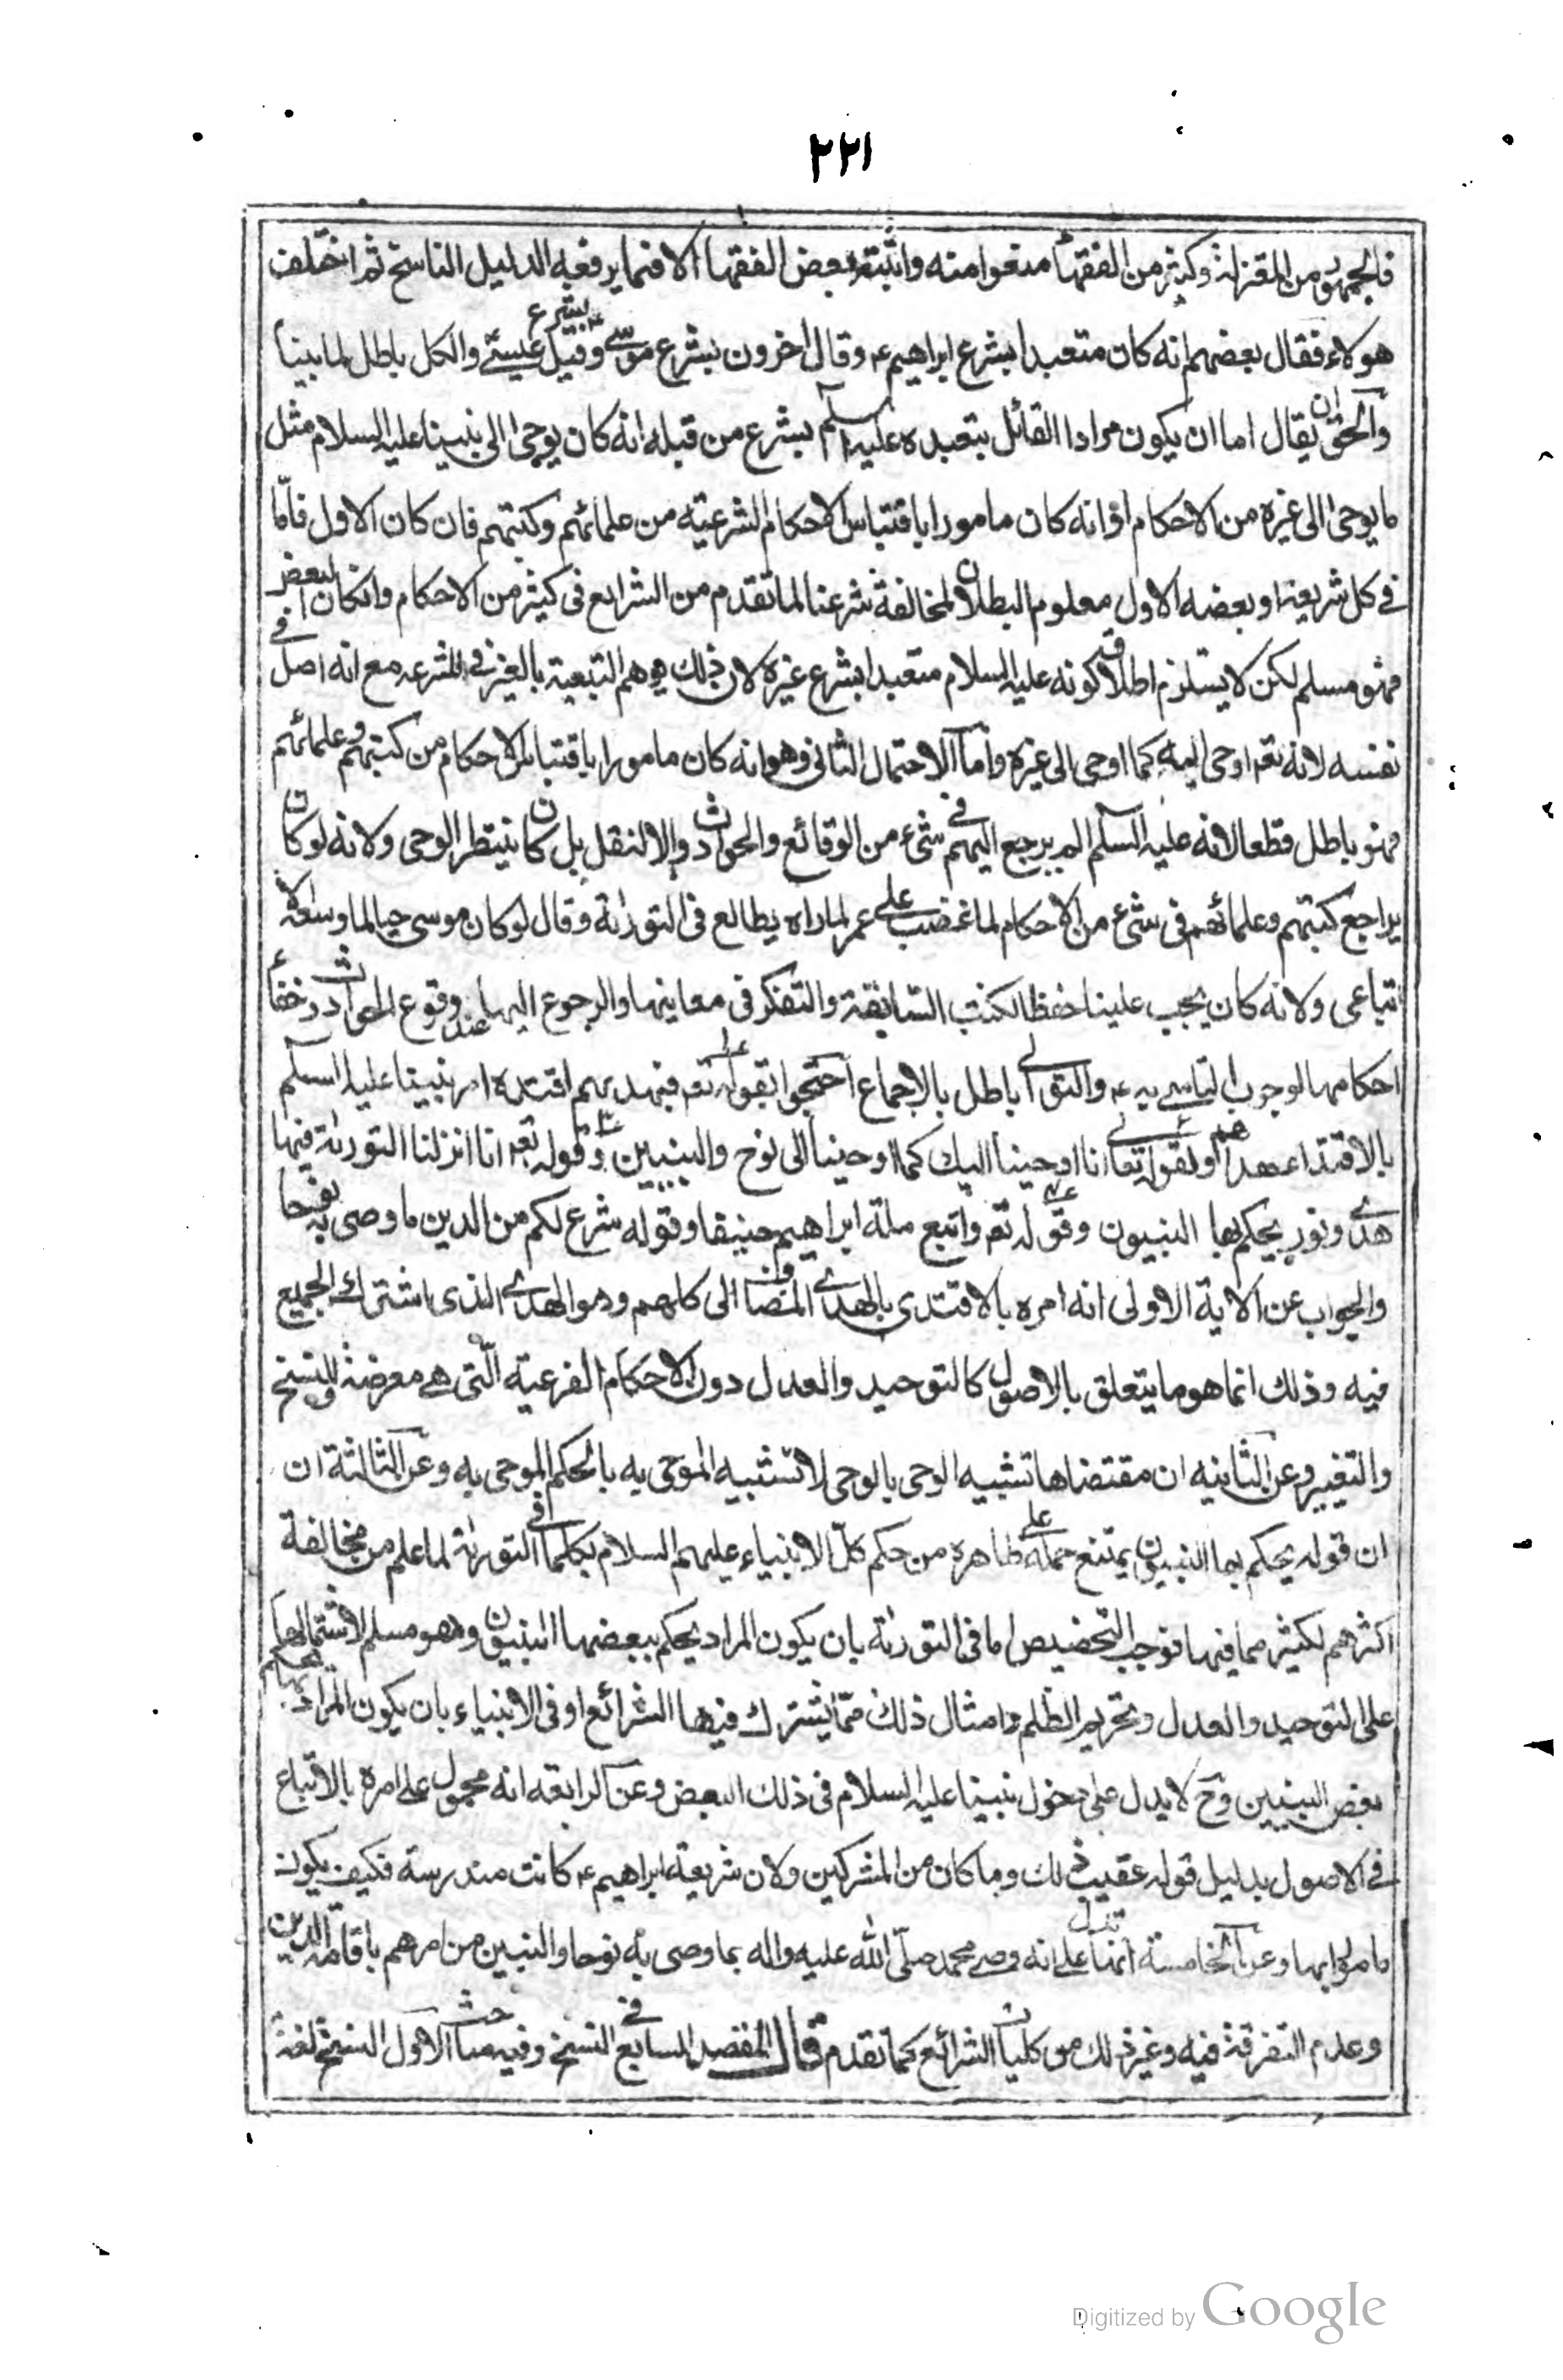 ٢٢١
فالجمهور من المعتزلة وكثير من الفقهاء منعوا منه واثبته بعض الفقهاء الا فيما يرفعه الدليل الناسخ ثم اختلف
هولاء فقال بعضهم انه كان متعبدا بشرع ابراهيم ع وقال اخرون بشرع موسى ع وقيل بشرع عيسى والكل باطل لما بينا
والحق ان يقال اما ان يكون مراد القائل بتعبده عليه السلم بشرع من قبله انه كان يوحى الى نبينا عليه السلام مثل
ما يوحى الى غيره من الاحكام او انه كان مامورا باقتباس الاحكام الشرعية من علمائهم وكتبهم فان كان الاول فاما
في كل شريعة او بعضه الاول معلوم البطلان لمخالفة شرعنا لما تقدم من الشرايع في كثير من الاحكام وانكان البعض
فهو مسلم لكن لا يستلزم اطلاق كونه عليه السلام متعبدا بشرع غيره لان ذلك يوهم التبعية بالغير في الشرعه مع انه اصل في
نفسه لانه تعه اوحى اليه كما اوحى الى غيره واما الاحتمال الثانى وهو انه كان مامورا باقتباس الاحكام من كتبهم وعلمائهم
فهو باطل قطعا لانه عليه السلم لم يرجع اليهم في شئ من الوقائع والحوادث والا لنقل بل كان ينتظر الوحى ولانه لو كان
يراجع كتبهم وعلمائهم في شئ من الاحكام لما غضب على عمر لما راه يطالع في التورىة وقال لو كان موسى حيا لما وسعه الا
اتباعى ولانه كان يجب علينا حفظ الكتب السابقة والتفكر فى معاينها والرجوع اليها عند وقوع الحوادث وخفاء
احكامها لوجوب التاسي به ع والتوالى باطل بالاجماع احتجوا بقوله تعه فبهديهم اقتده امر نبينا عليه السلم
بالاقتداء بهداهم ولقوله تعالى انا اوحينا اليك كما اوحينا الى نوح والنبيين وقوله تعه انا انزلنا التورىة فيها
هدى ونور يحكم بها النبيون وقوله تعه واتبع ملة ابراهيم حنيفا وقوله شرع لكم من الدين ما وصى به نوحا
والجواب عن الاية الاولى انه امره بالاقتدى بالهدى المضاف الى كلهم وهو الهدى الذى اشترك الجميع
فيه وذلك انما هو ما يتعلق بالاصول كالتوحيد والعدل دون الاحكام الفرعية التى هي معرضة للنسخ
والتغيير وعن الثانيه ان مقتضاها تشبيه الوحى بالوحى لا تشبيه الموحى به بالحكم الموحى به وعن الثالثة ان
ان قوله يحكم بها النبيون يمتنع حمله على ظاهره من حكم كل الانبياء عليهم السلام بكلما في التورىة لما علم من مخالفة
اكثرهم لكثير مما فيها فوجب التخصيص اما فى التورىة بان يكون المراد يحكم ببعضها النبيون وهو مسلم لاشتمالها
على التوحيد والعدل وتحريم الظلم وامثال ذلك مما يشترك فيها الشرائع او فى الانبياء بان يكون المراد يحكم بها
بعض النبيين وح لا يدل على دخول نبينا عليه السلام فى ذلك البعض وعن الرابعه انه محمول على امره بالاتباع
في الاصول بدليل قوله عقيب ذلك وما كان من المشركين ولان شريعة ابراهيم ع كانت مندرسة فكيف يكون
مامورا بها وعن الخامسة انها تدل على انه وصى محمد صلى الله عليه واله بما وصى به نوحا والنبيين من امرهم باقامة الدين
وعدم التفرقة فيه وغير ذلك من كليات الشرائع كما تقدم قال المقصد السابع في النسخ وفيه مباحث الاول النسخ لغة
Digitized by Google